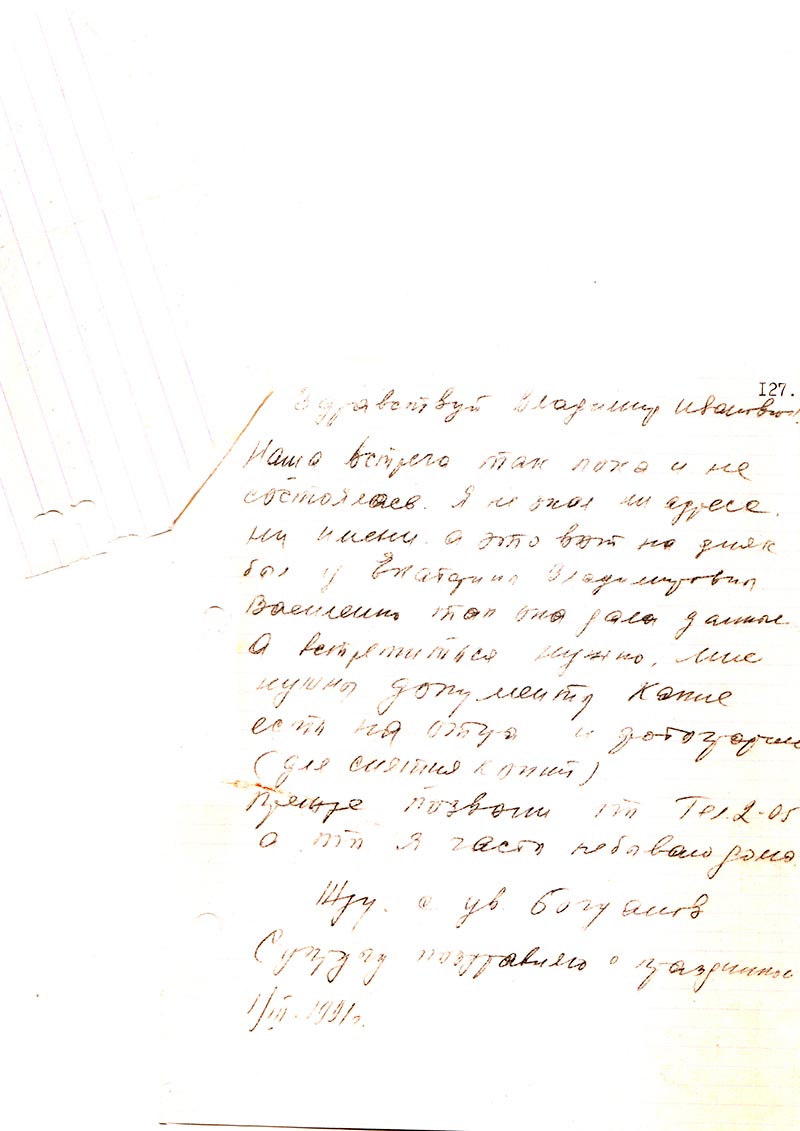 127.
Здравствуй Владимир Иванович!
Наша встреча так пока и не
состоялась. Я не знал ни адреса.
ни имени. а это вот на днях
был у Екатерины Владимировны
Василенко так она дала данные
А встретиться нужно. мне
нужны документы какие
есть на отца и фотографии
(для снятия копий)
Прежде позвони по Тел. 2-05
а то я часто не бываю дома.
Жду. с ув. Богданов
Супругу поздравляю с праздником
1/III-1991г.